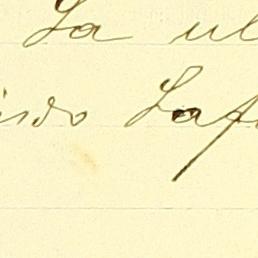 La ul
isdo Laf